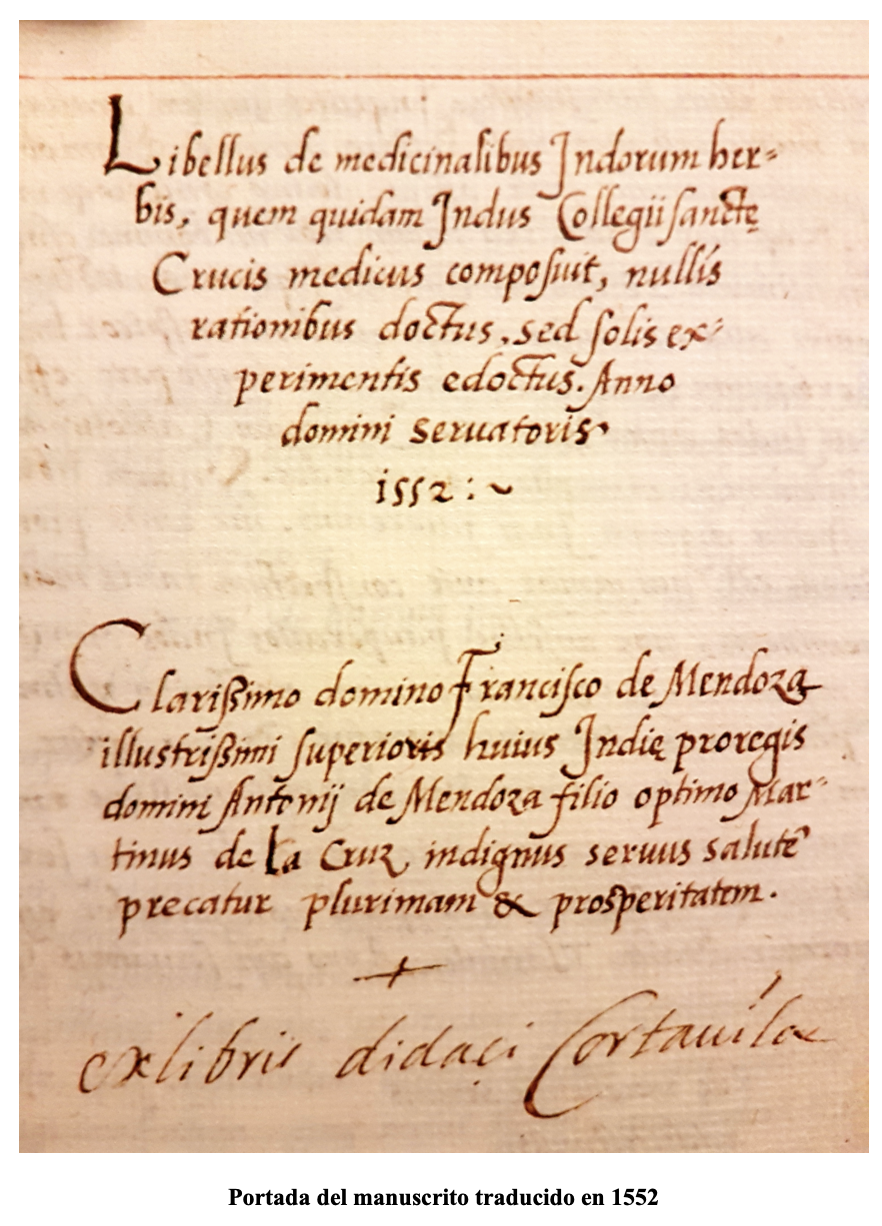 Libellus de medicinalibus Indorum her=
bis, quem quidam Indus Collegii sanctę
Crucis medicus composuit, nullis
rationibus doctus, sed solis ex=
perimentis edoctus. Anno
domini seruatoris
1552 :~
Clarißimo domino Francisco de Mendoza
illustrißimi superioris huius Indię proregis
domini Antonij de Mendoza filio optimo Mar=
tinus de la Cruz indignus seruus salutē
precatur plurimam & prosperitatem.
+
ex libris didaci Cortauila
Portada del manuscrito traducido en 1552